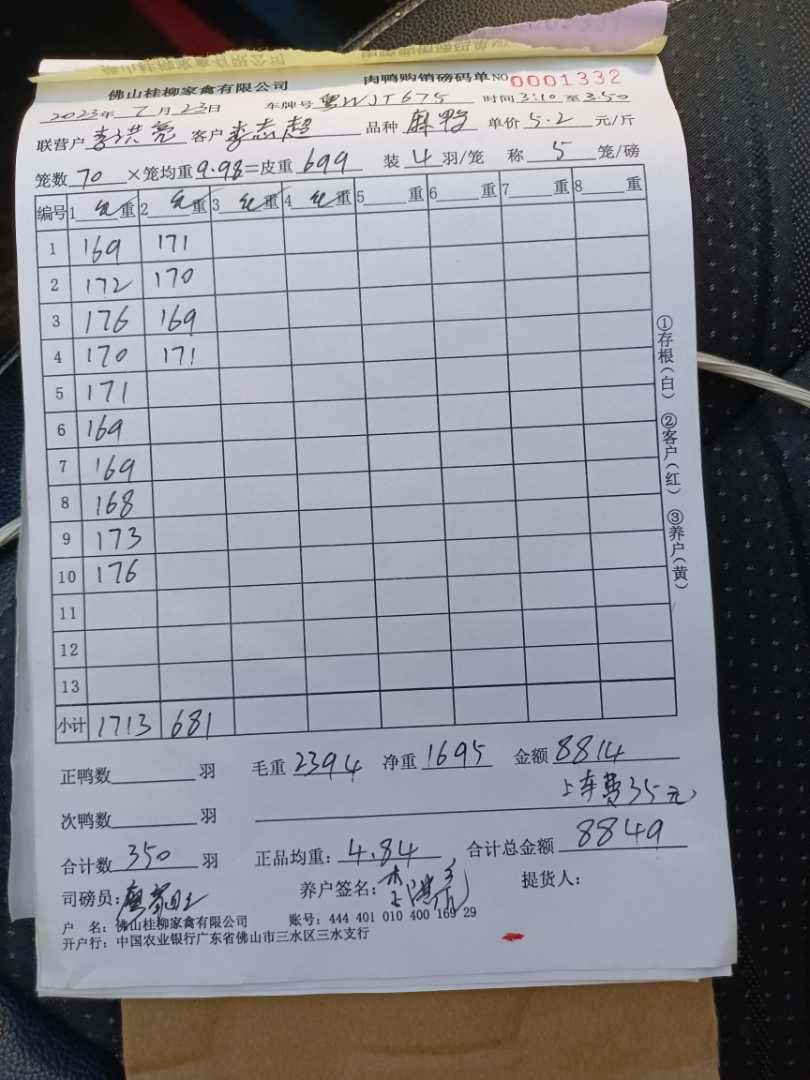 佛山桂柳家禽有限公司 肉鸭购销磅码单 NO 0001332
2023年 7月 23日 车牌号 粤WJT675 时间 3:10 至 3:50
联营户 李洪亮 客户 李志超 品种 麻鸭 单价 5.2 元/斤
笼数 70 ×笼均重 9.98 =皮重 699 装 4 羽/笼 称 5 笼/磅
编号 1 毛重 2 毛重 3 毛重 4 毛重 5 重 6 重 7 重 8 重
1 169 171
2 172 170
3 176 169
4 170 171
5 171
6 169
7 169
8 168
9 173
10 176
11
12
13
小计 1713 681
①存根(白) ②客户(红) ③养户(黄)
正鸭数 羽 毛重 2394 净重 1695 金额 8814
上车费35元
次鸭数 羽
合计数 350 羽 正品均重: 4.84 合计总金额 8849
司磅员: 养户签名: 提货人:
户 名: 佛山桂柳家禽有限公司 账号: 444 401 010 400 169 29
开户行: 中国农业银行广东省佛山市三水区三水支行